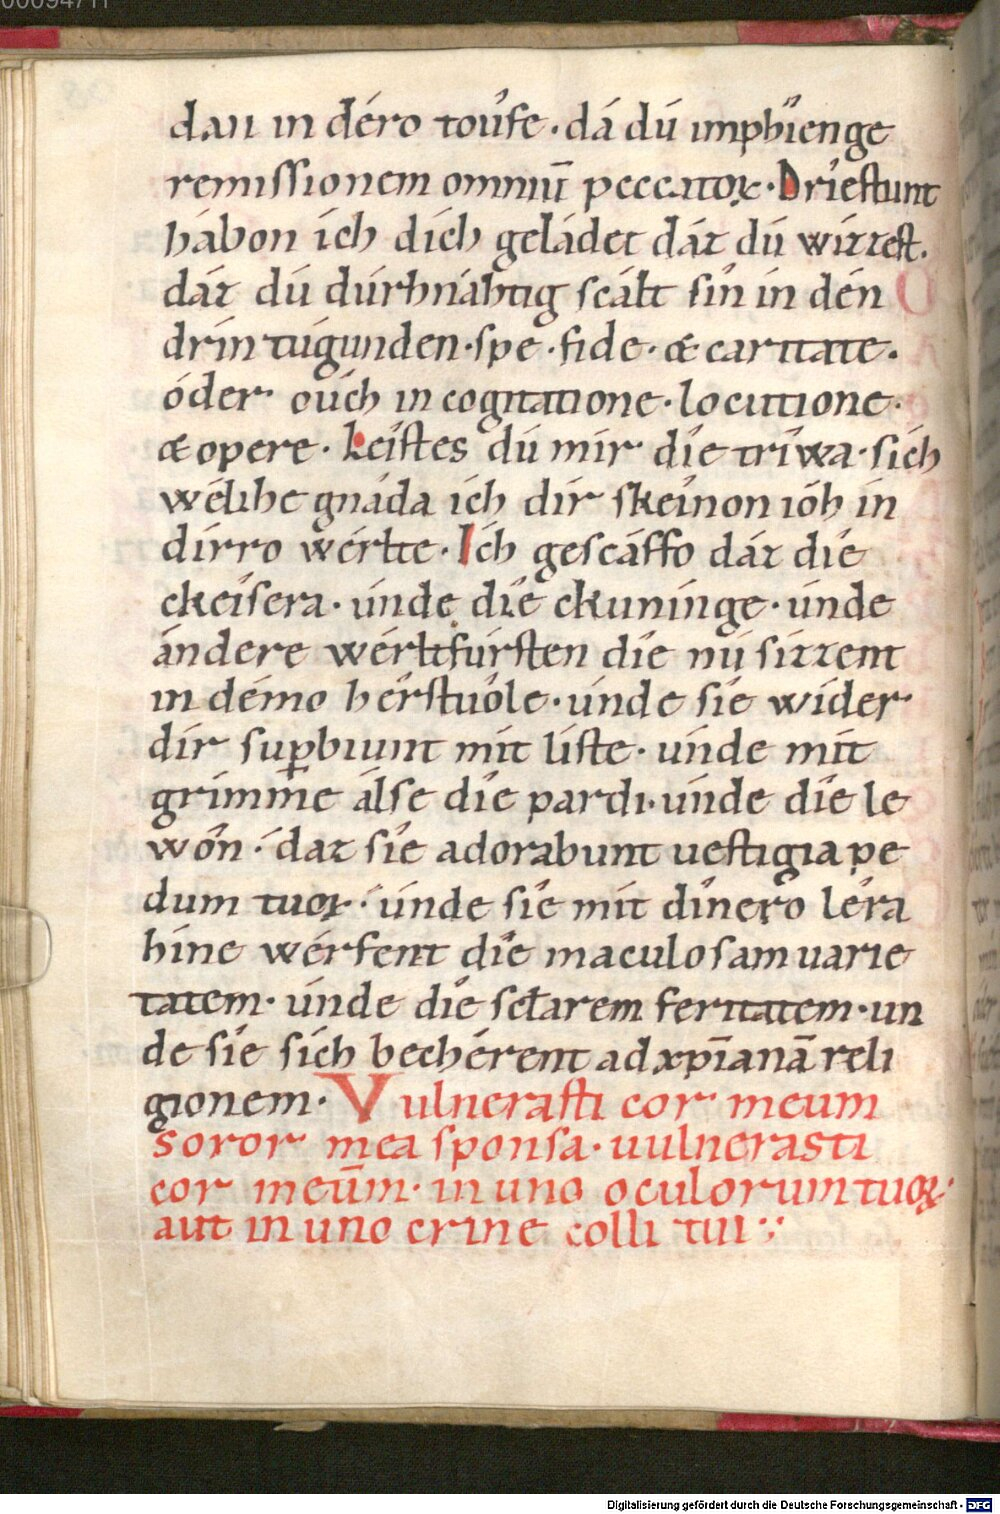 00094711
dan in déro toûfe · dá dû imphîenge
remissionem omniū peccatoꝝ · Drîestunt
hábon ích dích geládet dáz dû wízzest.
dáz dû dúrhnáhtig scált sîn in dén
drín túgunden · spe · fide · & caritate ·
óder oûch in cogitatione · locutione ·
& opere · Leîstes dû mír die triwa · sích
wélihe gnâda ích dír skeînon ióh in
dírro wérlte · Ích gescáffo dáz die
ckeîsera · únde die ckuninge · únde
ándere wérltfúrsten die nû sizzent
in démo hêrstuôle · únde sie wíder
dír suꝑbiunt mít líste · únde mít
grimme álse die pardi · únde die le
wôn · dáz sie adorabunt uestigia pe
dum tuoꝝ · únde sie mít dînero lêra
híne wérfent die maculosam uarie
tatem · únde die secularem feritatem · un
de sie sích bechêrent ad xp̄ianā reli
gionem · Vulnerasti cor meum
soror mea sponsa · uulnerasti
cor meūm · in uno oculorum tuoꝝ ·
aut in uno crine colli tui
Digitalisierung gefördert durch die Deutsche Forschungsgemeinschaft - DFG